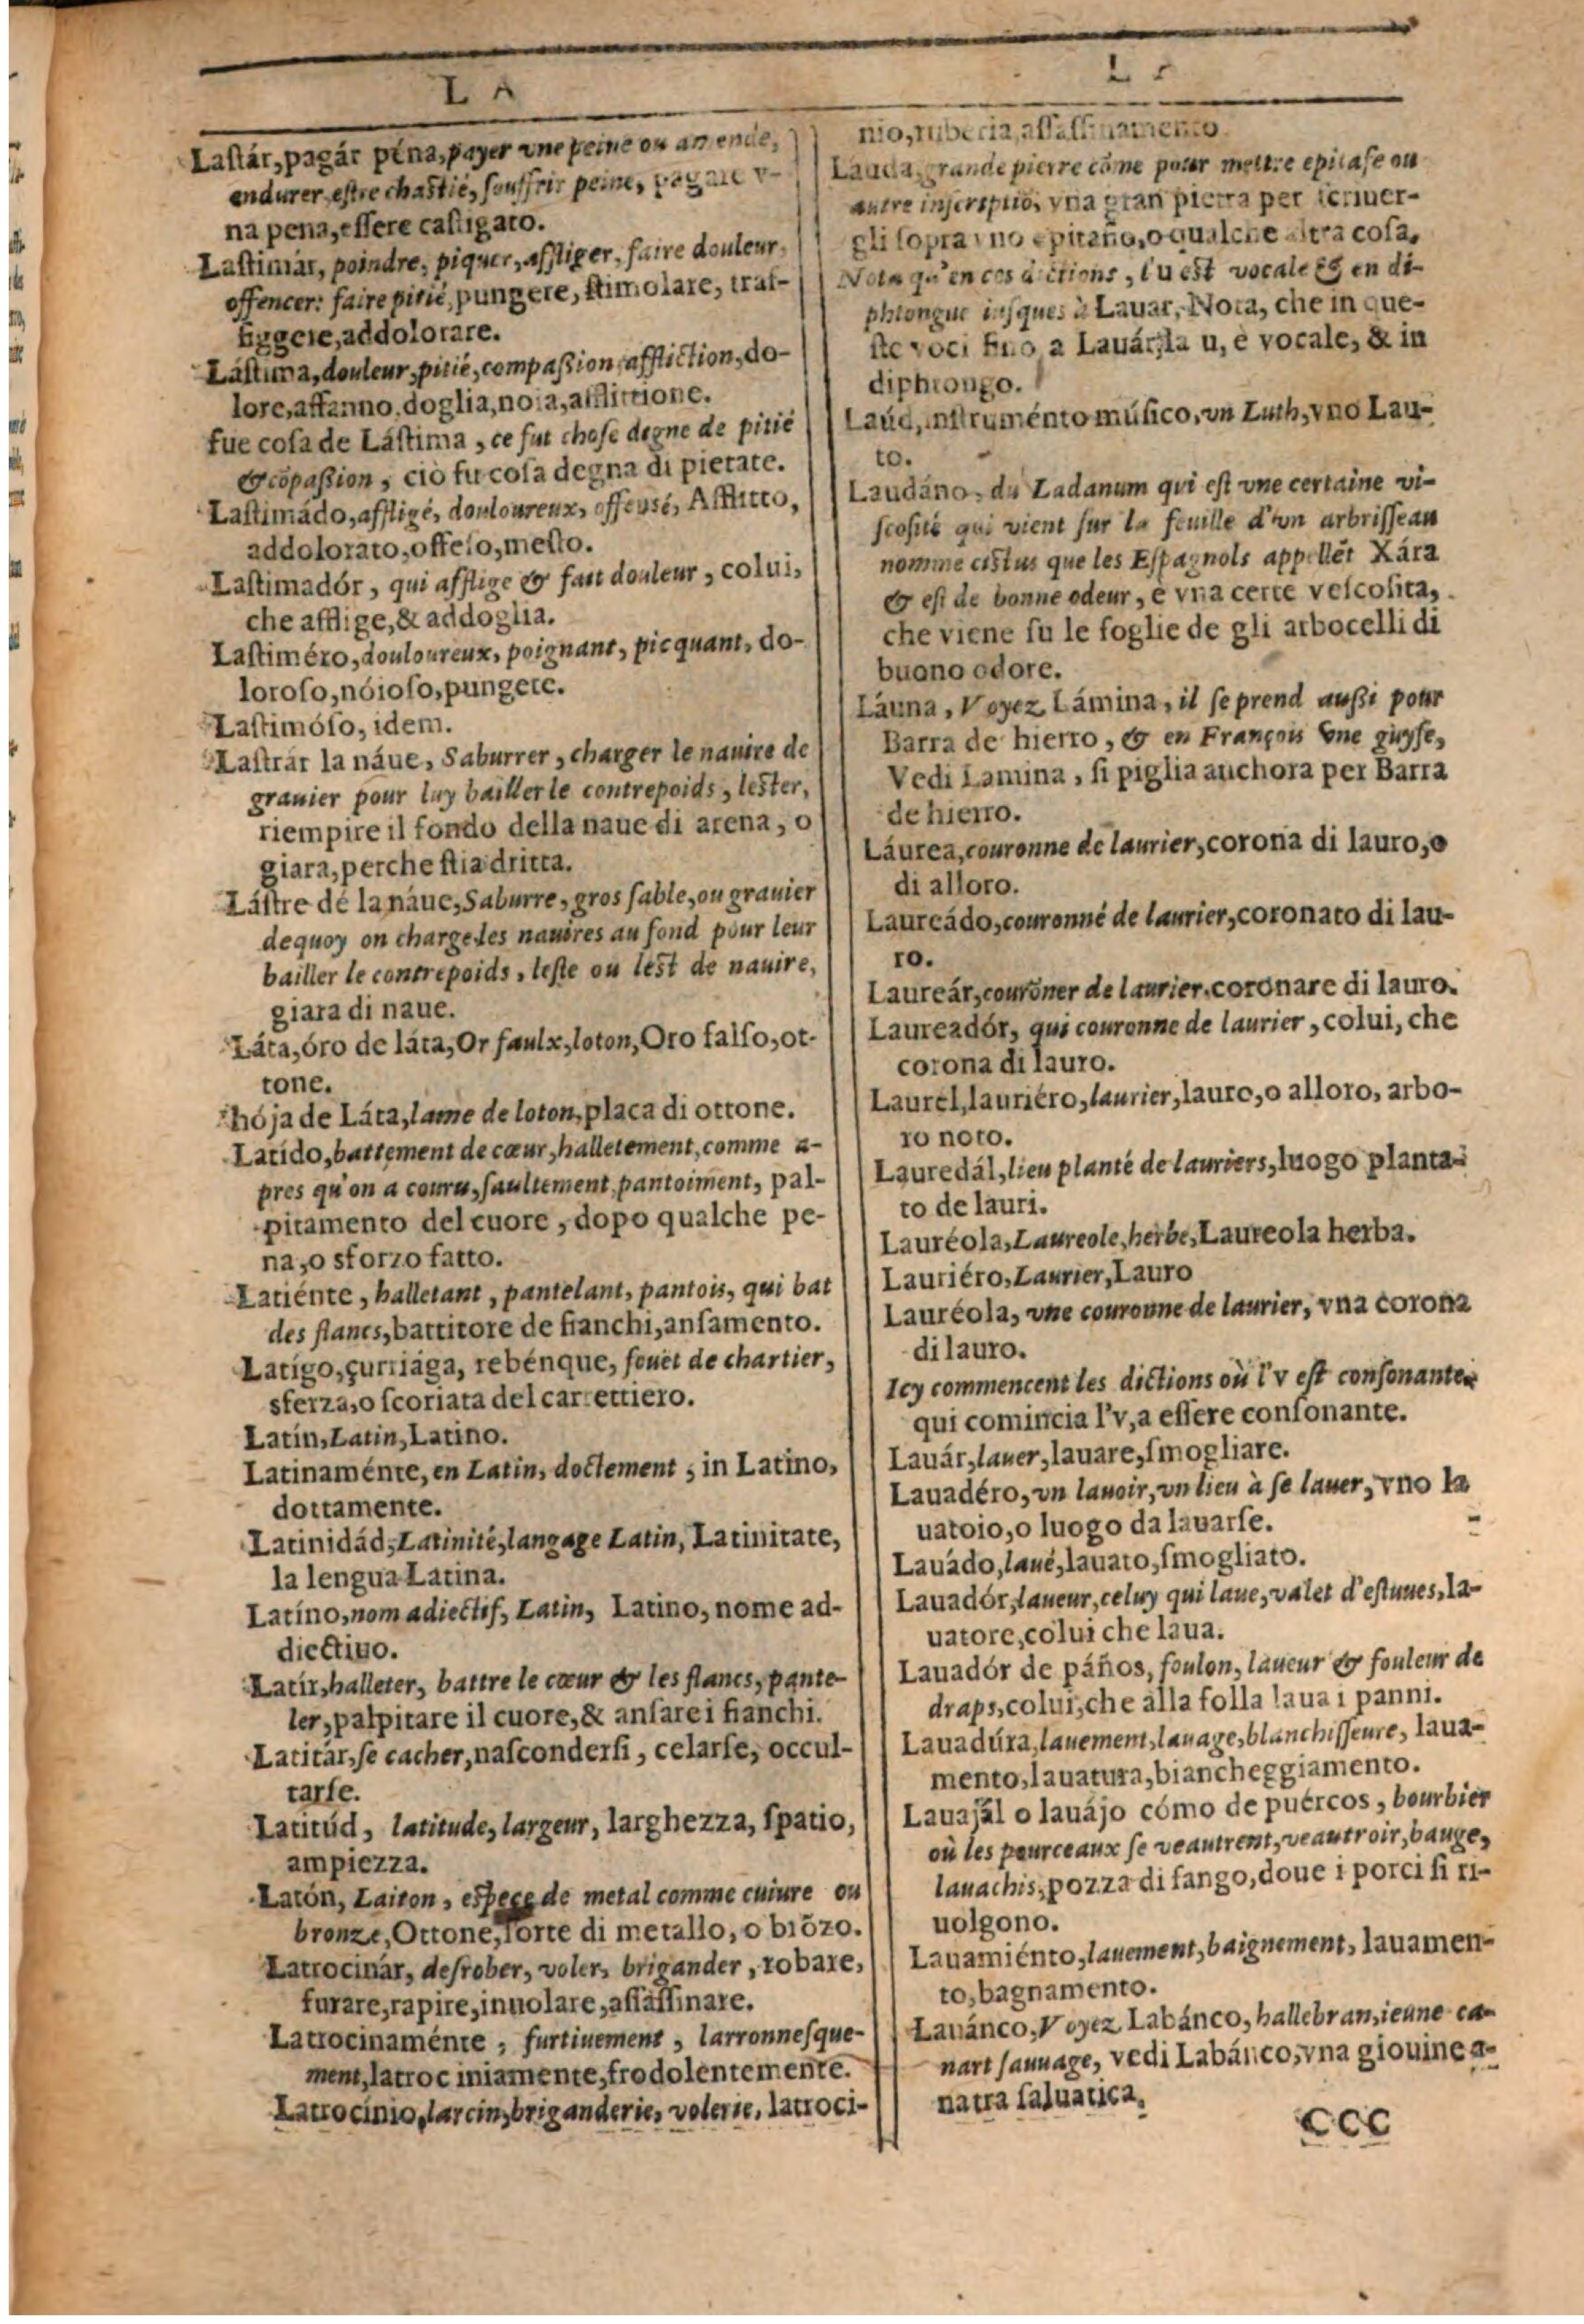 L A
Laſtár,pagár péna,payer vne peine ou amende,
endurer,eſtre chaſtié,ſouffrir peine, pagare v-
na pena,eſſere caſtigato.
Laſtimár, poindre, piquer, affliger, faire douleur,
offencer: faire pitié, pungere, ſtimolare, traf-
figgere,addolorare.
Láſtima,douleur,pitié,compaſsion,affliction,do-
lore,affanno,doglia,noia,afflittione.
fue coſa de Láſtima, ce fut choſe digne de pitié
&cõpaſsion, ciò fu coſa degna di pietate.
Laſtimádo,affligé, douloureux, offensé, Afflitto,
addolorato,offeſo,meſto.
Laſtimadór, qui afflige & fait douleur, colui,
che afflige,& addoglia.
Laſtiméro,douloureux, poignant, picquant, do-
loroſo,nóioſo,pungete.
Laſtimóſo, idem.
Laſtrár la náue, Saburrer, charger le nauire de
grauier pour luy bailler le contrepoids, leſter,
riempire il fondo della naue di arena, o
giara,perche ſtia dritta.
Láſtre dé la náue,Saburre,gros ſable,ou grauier
dequoy on charge les nauires au fond pour leur
bailler le contrepoids, leſte ou leſt de nauire,
giara di naue.
Láta,óro de láta,Or faulx,loton,Oro falſo,ot-
tone.
hója de Láta,lame de loton,placa di ottone.
Latído,battement de cœur,halletement,comme a-
pres qu'on a couru,ſaultement,pantoiment, pal-
pitamento del cuore, dopo qualche pe-
na,o sforzo fatto.
Latiénte, halletant, pantelant, pantois, qui bat
des flancs,battitore de fianchi,anſamento.
Latígo,çurriága, rebénque, fouet de chartier,
sferza,o ſcoriata del carrettiero.
Latín,Latin,Latino.
Latinaménte,en Latin, doctement, in Latino,
dottamente.
Latinidád,Latinité,langage Latin, Latinitate,
la lengua Latina.
Latíno,nom adiectif, Latin, Latino, nome ad-
diectiuo.
Latír,halleter, battre le cœur & les flancs, pante-
ler,palpitare il cuore,& anſare i fianchi.
Latitár,ſe cacher,naſconderſi, celarſe, occul-
tarſe.
Latitúd, latitude,largeur, larghezza, ſpatio,
ampiezza.
Latón, Laiton, eſpece de metal comme cuiure ou
bronze,Ottone,ſorte di metallo, o brõzo.
Latrocinár, deſrober, voler, brigander, robare,
furare,rapire,inuolare,aſſaſſinare.
Latrocinaménte, furtiuement, larronneſque-
ment,latroc iniamente,frodolentemente.
Latrocínio,larcin,briganderie, volerie, latroci-
nio,ruberia,aſſaſſinamento.
Lauda,grande pierre cõme pour mettre epitafe ou
autre inſcriptiõ, vna gran pietra per ſcriuer-
gli ſopra vno epitafio,o qualche altra coſa.
Nota qu'en ces dictions, l'u eſt vocale & en di-
phtongue iuſques à Lauar, Nota, che in que-
ſte voci fino a Lauár,la u, è vocale, & in
diphtongo.
Laúd,inſtruménto múſico,vn Luth,vno Lau-
to.
Laudáno, du Ladanum qui eſt vne certaine vi-
ſcoſité qui vient ſur la feuille d'vn arbriſſeau
nomme ciſtus que les Eſpagnols appellẽt Xára
& eſt de bonne odeur, è vna certe veſcoſita,
che viene ſu le foglie de gli arbocelli di
buono odore.
Láuna, Voyez Lámina, il ſe prend auſsi pour
Barra de hierro, & en François vne guyſe,
Vedi Lamina, ſi piglia anchora per Barra
de hierro.
Láurea,couronne de laurier,corona di lauro,o
di alloro.
Laureádo,couronné de laurier,coronato di lau-
ro.
Laureár,courõner de laurier,coronare di lauro.
Laureadór, qui couronne de laurier, colui, che
corona di lauro.
Laurél,lauriéro,laurier,lauro,o alloro, arbo-
ro noto.
Lauredál,lieu planté de lauriers,luogo planta-
to de lauri.
Lauréola,Laureole,herbe,Laureola herba.
Lauriéro,Laurier,Lauro
Lauréola, vne couronne de laurier, vna corona
di lauro.
Icy commencent les dictions où l'v eſt conſonante.
qui comincia l'v,a eſſere conſonante.
Lauár,lauer,lauare,ſmogliare.
Lauadéro,vn lauoir,vn lieu à ſe lauer, vno la
uatoio,o luogo da lauarſe.
Lauádo,laué,lauato,ſmogliato.
Lauadór,laueur,celuy qui laue,valet d'eſtuues,la-
uatore,colui che laua.
Lauadór de páños, foulon, laueur & fouleur de
draps,colui,che alla folla laua i panni.
Lauadúra,lauement,lauage,blanchiſſeure, laua-
mento,lauatura,biancheggiamento.
Lauajál o lauájo cómo de puércos, bourbier
où les pourceaux ſe veautrent,veautroir,bauge,
lauachis,pozza di fango,doue i porci ſi ri-
uolgono.
Lauamiénto,lauement,baignement, lauamen-
to,bagnamento.
Lauánco,Voyez Labánco,hallebran,ieune ca-
nart ſauuage, vedi Labánco,vna giouine a-
natra ſaluatica.
CCC